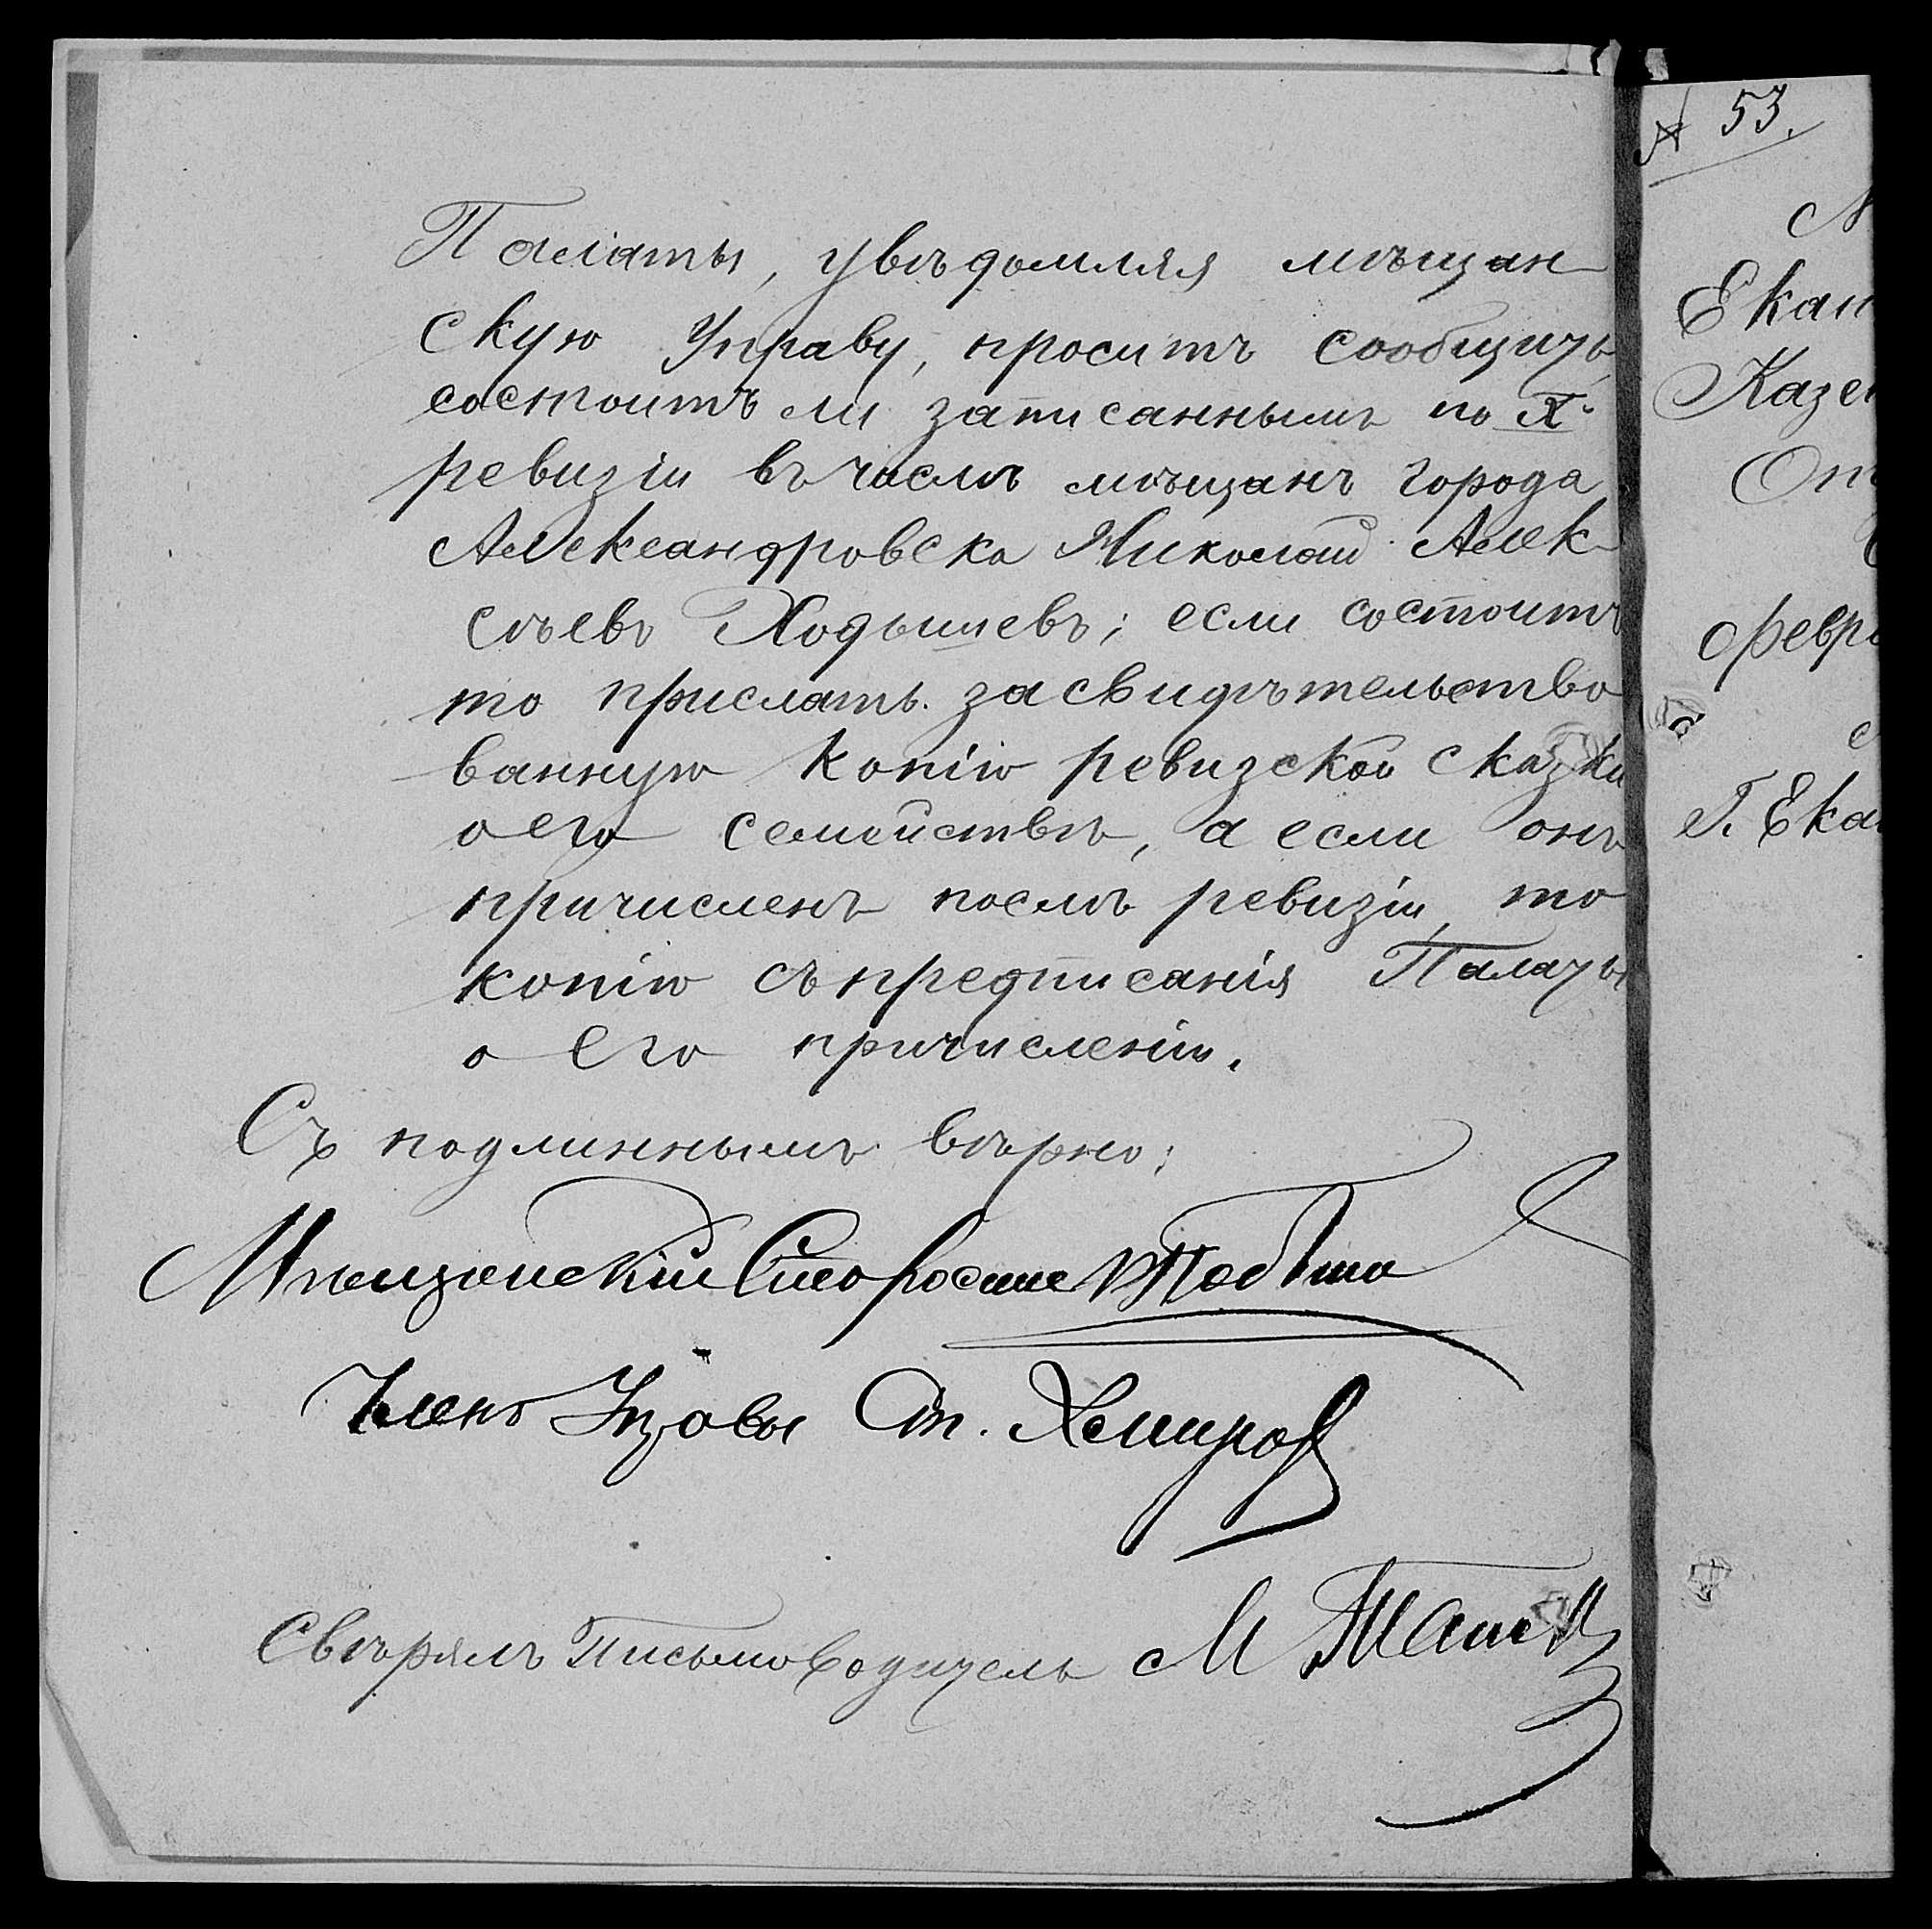 Палаты, увѣдомляя мѣщан
скую Управу, проситъ сообщить
состоитъ ли записаннымъ по X.
ревизіи въ числѣ мѣщанъ города
Александровска Николай Алек
сѣевъ Ходышевъ; если состоитъ
то прислать засвидѣтельство
ванную копію ревизской сказки
о его семействѣ, а если онъ
причисленъ послѣ ревизіи, то
копію съ предписанія Палаты
о его причисленіи.
Съ подлиннымъ вѣрно;
Мѣщанскій Староста
Членъ Управы Ст.
Свѣрялъ Письмоводитель М
№ 53.
Екат
Казен
От
февра
Г. Ека